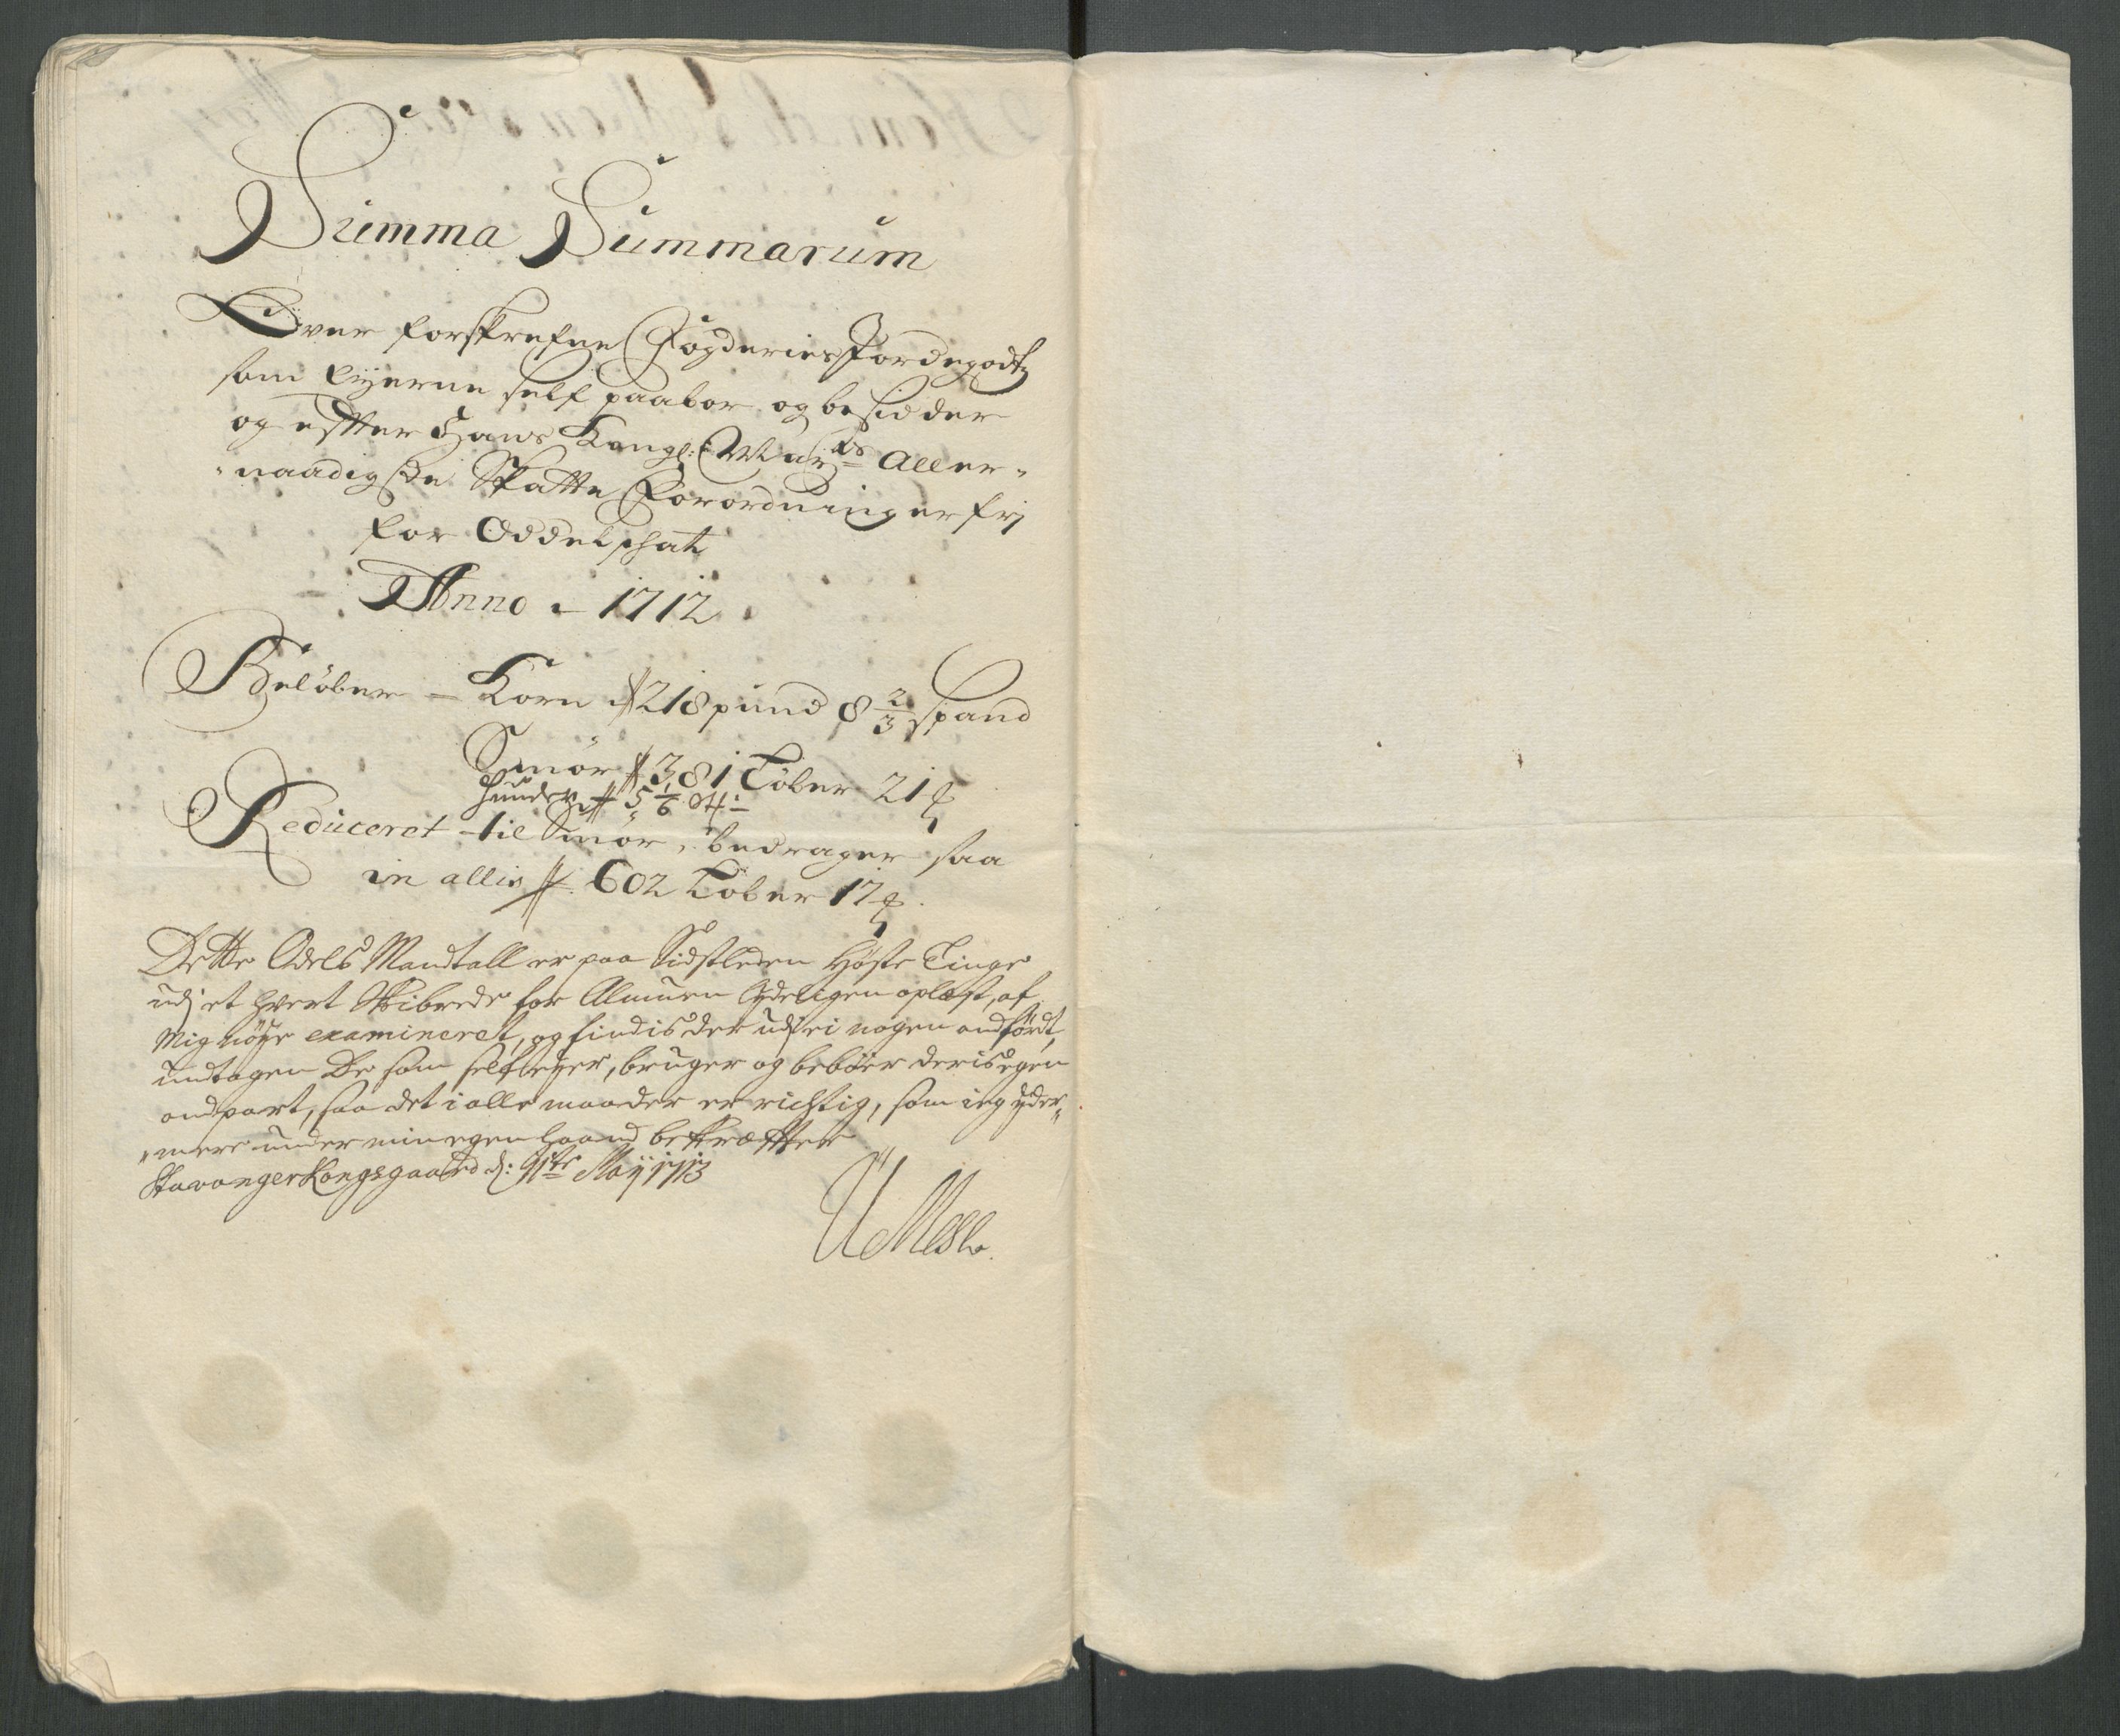 Summa Summarum
Over forskrefne Fogderies Jordegodtz
som Eyerne self paabor og besidder
og efter Hans Kongl: May:ts Aller-
naadigste Skatte Forordninger frj
for Oddelschat
Anno - 1712
Beløber - Korn 218 pund 8 2/3 spand
Smør 381 Løber 21
Huuder 5 1/6
Reduceret til Smør, bedrager saa
in allis 602 Løber 17
Dette Odels Mandtall er paa Sidstleden Høste Tinge
udj et hvert Skibrede for Almuen Tydeligen oplæst, af
Mig nøye examineret, og findis der udj ei nogen andført,
undtagen De som self eyer, bruger og beboer deris egen
andpart, saa det i alle maader er richtig, som ieg yder-
mere under min egen haand bekræffter
Stavanger Kongsgaard d: Maij 1713